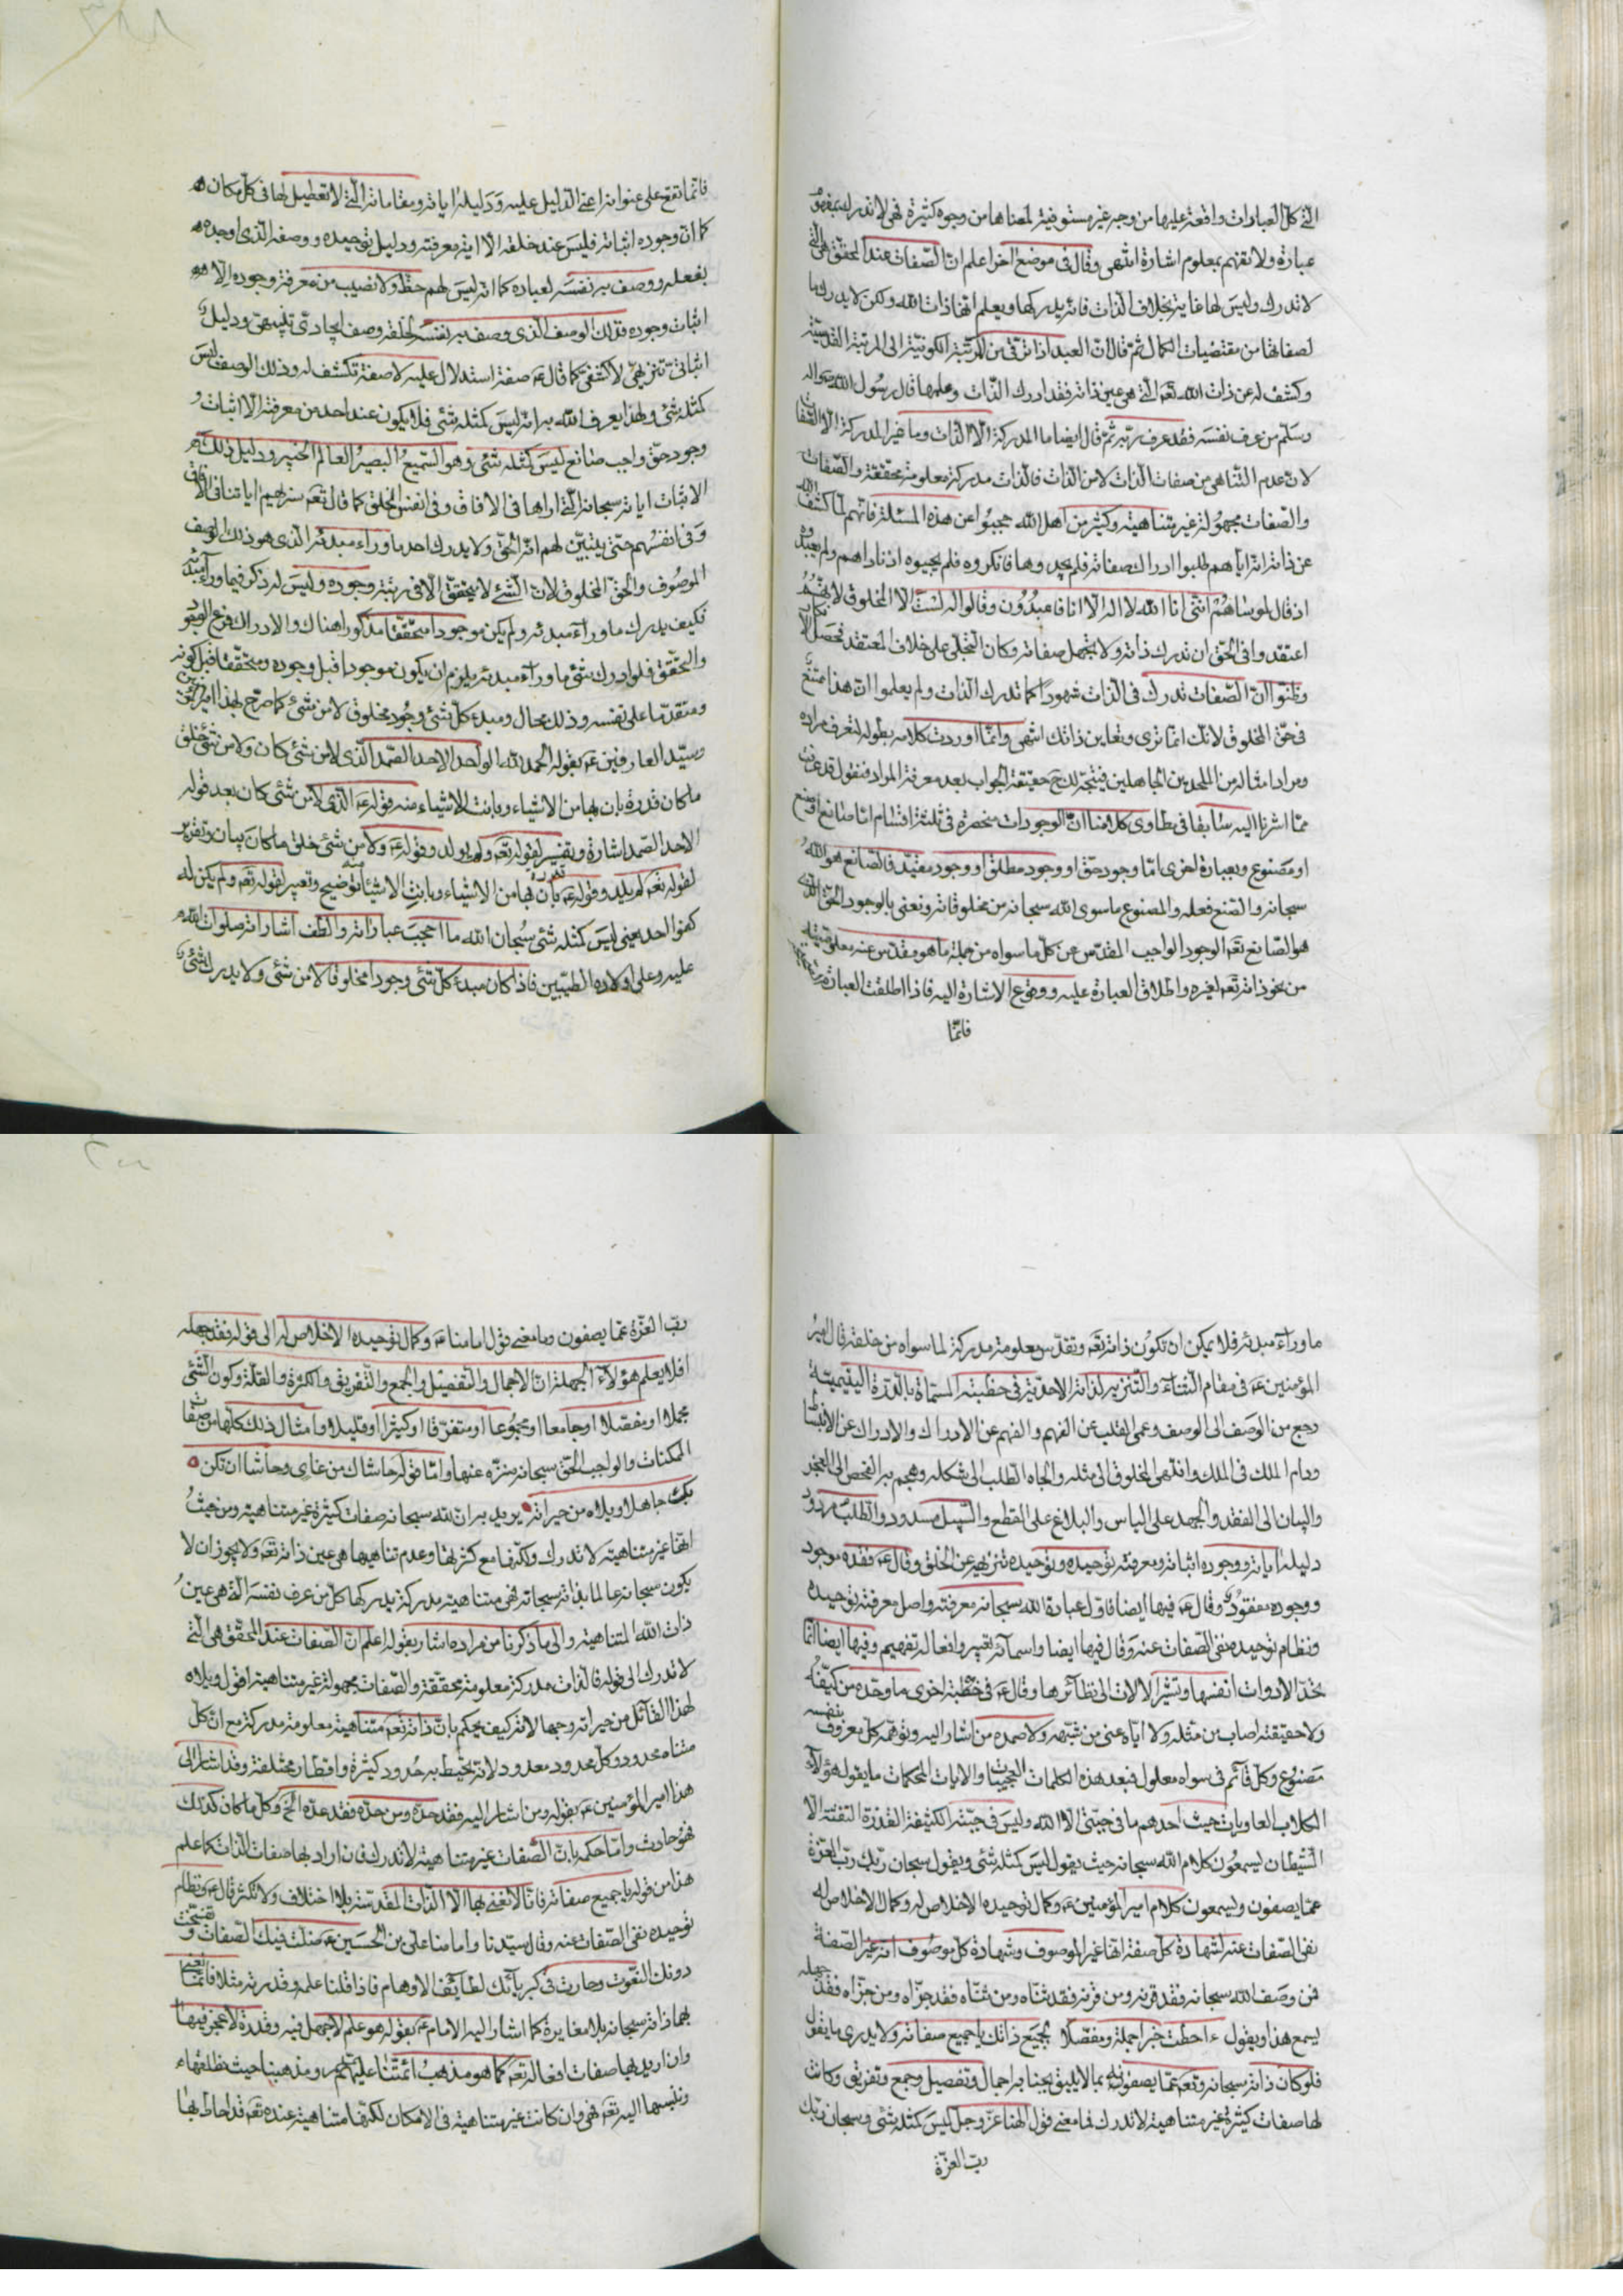 التي كل العبارات واقعة عليها من وجه غير مستوفية لمعناها من وجوه كثيرة فهي لا تدرك بمفهوم
عبارة ولا تفهم بمعلوم اشارة انتهى وقال في موضع اخر اعلم ان الصفات عند المحقق هي التي
لا تدرك وليس لها غاية بخلاف الذات فانه يدركها ويعلم انها ذات الله ولكن لا يدرك ما
لصفاتها من مقتضيات الكمال ثم قال ان العبد اذا ترقى من المرتبة الكونية الى المرتبة القدسية
وكشف له عن ذات الله تعه التي هي عين ذاته فقد ادرك الذات وعلمها قال رسول الله صلى الله
وسلم من عرف نفسه فقد عرف ربه ثم قال ايضا ما المدركة الا الذات وما غير المدركة الا الصفات
لان عدم التناهي من صفات الذات لا من الذات فالذات مدركة معلومة محققة والصفات
والصفات مجهولة غير متناهية وكثير من اهل الله حجبوا عن هذه المسئلة فانهم لما كشف الله
عن ذاته انه اياهم طلبوا ادراك صفاته فلم يجدوها فانكروه فلم يجيبوه اذ ناداهم ولم يعبدوه
اذ قال لموساهم انني انا الله لا اله الا انا فاعبدون وقالوا له لست الا المخلوق لانهم
اعتقدوا في الحق ان تدرك ذاته ولا تجهل صفاته وكان التجلي على خلاف المعتقد فحصل الانكار
وظنوا ان الصفات تدرك في الذات شهودا كما تدرك الذات ولم يعلموا ان هذا ممتنع
في حق المخلوق لانك انما ترى وتعاين ذاتك انتهى وانما اوردت كلامه بطوله لتعرف مراده
ومراد امثاله من الملحدين الجاهلين فيتجه لك حقيقة الجواب بعد معرفة المراد فنقول قد عرفت
مما اشرنا اليه سابقا في مطاوي كلامنا ان الموجودات منحصرة في ثلثة اقسام اما صانع او صنع
او مصنوع وبعبارة اخرى اما وجود حق او وجود مطلق او وجود مقيد فالصانع هو الله
سبحانه والصنع فعله والمصنوع ما سوى الله سبحانه من مخلوقاته ونعني بالوجود الحق الله
هو الصانع تعه الوجود الواجب المقدس عن كل ما سواه من جملة ما هو مقدس عنه معلومية
من نحو ذاته تعه لغيره واطلاق العبارة عليه ووقوع الاشارة اليه فاذا اطلقت العبارة
فانما
فانما تقع على عنوانه اعني الدليل عليه ودليله اياته ومقاماته التي لا تعطيل لها في كل مكان
كما ان وجوده اثباته فليس عند خلقه الا اية معرفته ودليل توحيده ووصفه الذي اوجده
بفعله ووصف به نفسه لعباده كما انه ليس لهم حظ ولا نصيب من معرفة وجوده الا
اثبات وجوده فذلك الوصف الذي وصف به نفسه لخلقه وصف ايجادي تنبيهي ودليل
اثباتي تنزيهي لا كشفي كما قال ع صفة استدلال عليه لا صفة تكشف له وذلك الوصف ليس
كمثله شئ ولهذا يعرف الله به انه ليس كمثله شئ فلا يكون عند احد من معرفته الا اثبات
وجود حق واجب صانع ليس كمثله شئ وهو السميع البصير العالم الخبير ودليل ذلك
الاثبات اياته سبحانه التي اراها في الافاق وفي انفس الخلق كما قال تعه سنريهم اياتنا في الافاق
وفي انفسهم حتى يتبين لهم انه الحق ولا يدرك احد ما وراء مبدئه الذي هو ذلك الوصف
الموصوف والحق المخلوق لان الشئ لا يتحقق الا في رتبة وجوده وليس له ذكر فيما وراء مبدئه
فكيف يدرك ما وراء مبدئه ولم يكن موجودا متحققا مذكورا هناك والادراك فرع الوجود
والتحقق فلو ادرك شئ ما وراء مبدئه يلزم ان يكون موجودا قبل وجوده ومتحققا قبل كونه
ومتقدما على نفسه وذلك محال ومبدء كل شئ وجود مخلوق لا من شئ كما صرح بهذا امير المؤمنين
وسيد العارفين ع بقوله الحمد لله الواحد الاحد الصمد الذي لا من شئ كان ولا من شئ خلق
ما كان قدرة بان بها من الاشياء وبانت الاشياء منه فقوله ع الذي لا من شئ كان بعد قوله
الاحد الصمد اشارة وتفسير لقوله تعه ولم يولد وقوله ع ولا من شئ خلق ما كان بيان وتقرير
لقوله تعه لم يلد وقوله ع قدرة بان بها من الاشياء وبانت الاشياء منه توضيح وتعبير لقوله تعه ولم يكن له
كفوا احد يعني ليس كمثله شئ سبحان الله ما اعجب عباراته والطف اشاراته صلوات الله
عليه وعلى اولاده الطيبين فاذا كان مبدء كل شئ وجودا مخلوقا لا من شئ ولا يدرك شئ
ما وراء مبدئه فلا يمكن ان تكون ذاته تعه وتقدس معلومة مدركة لما سواه من خلقه قال امير
المؤمنين ع في مقام الثناء والتنزيه لذاته الاحدية في خطبته المسماة بالدرة اليتيمية
رجع من الوصف الى الوصف وعمى القلب عن الفهم والفهم عن الادراك والادراك عن الاستنباط
ودام الملك في الملك وانتهى المخلوق الى مثله والجاه الطلب الى شكله وهجم به الفحص الى العجز
والبيان الى الفقد والجهد على الياس والبلاغ على القطع والسبيل مسدود والطلب مردود
دليله اياته ووجوده اثباته ومعرفته توحيده وتوحيده تنزيهه عن الخلق وقال ع فقده موجود
ووجوده مفقود وقال ع فيها ايضا فاول عبادة الله سبحانه معرفته واصل معرفته توحيده
ونظام توحيده نفي الصفات عنه وقال فيها ايضا واسمائه تعبير وافعاله تفهيم وفيها ايضا انما
تحد الادوات انفسها وتشير الالات الى نظائرها وقال ع في خطبة اخرى ما وحده من كيفه
ولا حقيقته اصاب من مثله ولا اياه عنى من شبهه ولا صمده من اشار اليه وتوهمه كل معروف بنفسه
مصنوع وكل قائم في سواه معلول فبعد هذه الكلمات العجيبات والايات المحكمات ما يقوله هؤلاء
الكلاب العاويات حيث احدهم ما في جبتي الا الله وليس في جبته الكثيفة القذرة النتنة الا
الشيطان ليسمعون كلام الله سبحانه حيث يقول ليس كمثله شئ ويقول سبحان ربك رب العزة
عما يصفون ويسمعون كلام امير المؤمنين ع وكمال توحيده الاخلاص له وكمال الاخلاص له
نفي الصفات عنه لشهادة كل صفة انها غير الموصوف وشهادة كل موصوف انه غير الصفة
فمن وصف الله سبحانه فقد قرنه ومن قرنه فقد ثناه ومن ثناه فقد جزاه ومن جزاه فقد جهله
يسمع هذا ويقول ءاحطت خبرا جملة ومفصلا بجميع ذاتك يا جميع صفاته ولا يدري ما يقول
فلو كان ذاته سبحانه وتعه عما يصفونه بما لا يليق بجنابه اجمال وتفصيل وجمع وتفريق وكانت
لها صفات كثيرة غير متناهية لا تدرك فما معنى قول الهنا عز وجل ليس كمثله شئ وسبحان ربك
رب العزة
رب العزة عما يصفون وما معنى قول امامنا ع وكمال توحيده الاخلاص له الى قوله فقد جهله
افلا يعلم هؤلاء الجهلة ان الاجمال والتفصيل والجمع والتفريق والكثرة والقلة وكون الشئ
مجملا او مفصلا او جامعا او مجموعا او متفرقا او كثيرا او قليلا وامثال ذلك كلها من صفات
الممكنات والواجب الحق سبحانه منزه عنها واما قوله حاشاك من غاى وحاشا ان تكن
بك جاهلا ويلاه من حيراته يريد به ان لله سبحانه صفات كثيرة غير متناهية ومن حيث
انها غير متناهية لا تدرك ولكنها مع كثرتها وعدم تناهيها هي عين ذاته تعه ولا يجوز ان لا
يكون سبحانه عالما بذاته سبحانه فهي متناهية مدركة يدركها كل من عرف نفسه التي هي عين
ذات الله المتناهية والى ما ذكرنا من مراده اشار بقوله اعلم ان الصفات عند المحقق هي التي
لا تدرك الى قوله فالذات مدركة معلومة محققة والصفات مجهولة غير متناهية اقول ويلاه
لهذا القائل من حيراته وجهالاته كيف يحكم بان ذاته تعه متناهية معلومة مدركة مع ان كل
متناه محدود وكل محدود معدود لانه تحيط به حدود كثيرة واقطار مختلفة وقد اشار الى
هذا امير المؤمنين ع بقوله ومن اشار اليه فقد حده ومن حده فقد عده الخ وكل ما كان كذلك
فهو حادث واما حكمه بان الصفات غير متناهية لا تدرك فان اراد بها صفات الذات كما علم
هذا من قوله يا جميع صفاته فانا لا نعني بها الا الذات المقدسة بلا اختلاف ولا تكثر قال ع ونظام
توحيده نفي الصفات عنه وقال سيدنا وامامنا علي بن الحسين ع ضلت فيك الصفات وتفسخت
دونك النعوت وحارت في كبريائك لطائف الاوهام فاذا قلنا علمه وقدرته مثلا فانما نعني
بهما ذاته سبحانه بلا مغايرة كما اشار اليه الامام ع بقوله هو علم لا جهل فيه وقدرة لا عجز فيها
وان اريد بها صفات افعاله تعه كما هو مذهب ائمتنا عليهم السلم ومذهبنا حيث نطلقها
وننسبها اليه تعه فهي وان كانت غير متناهية في الامكان لكنها متناهية عنده تعه قد احاط بها